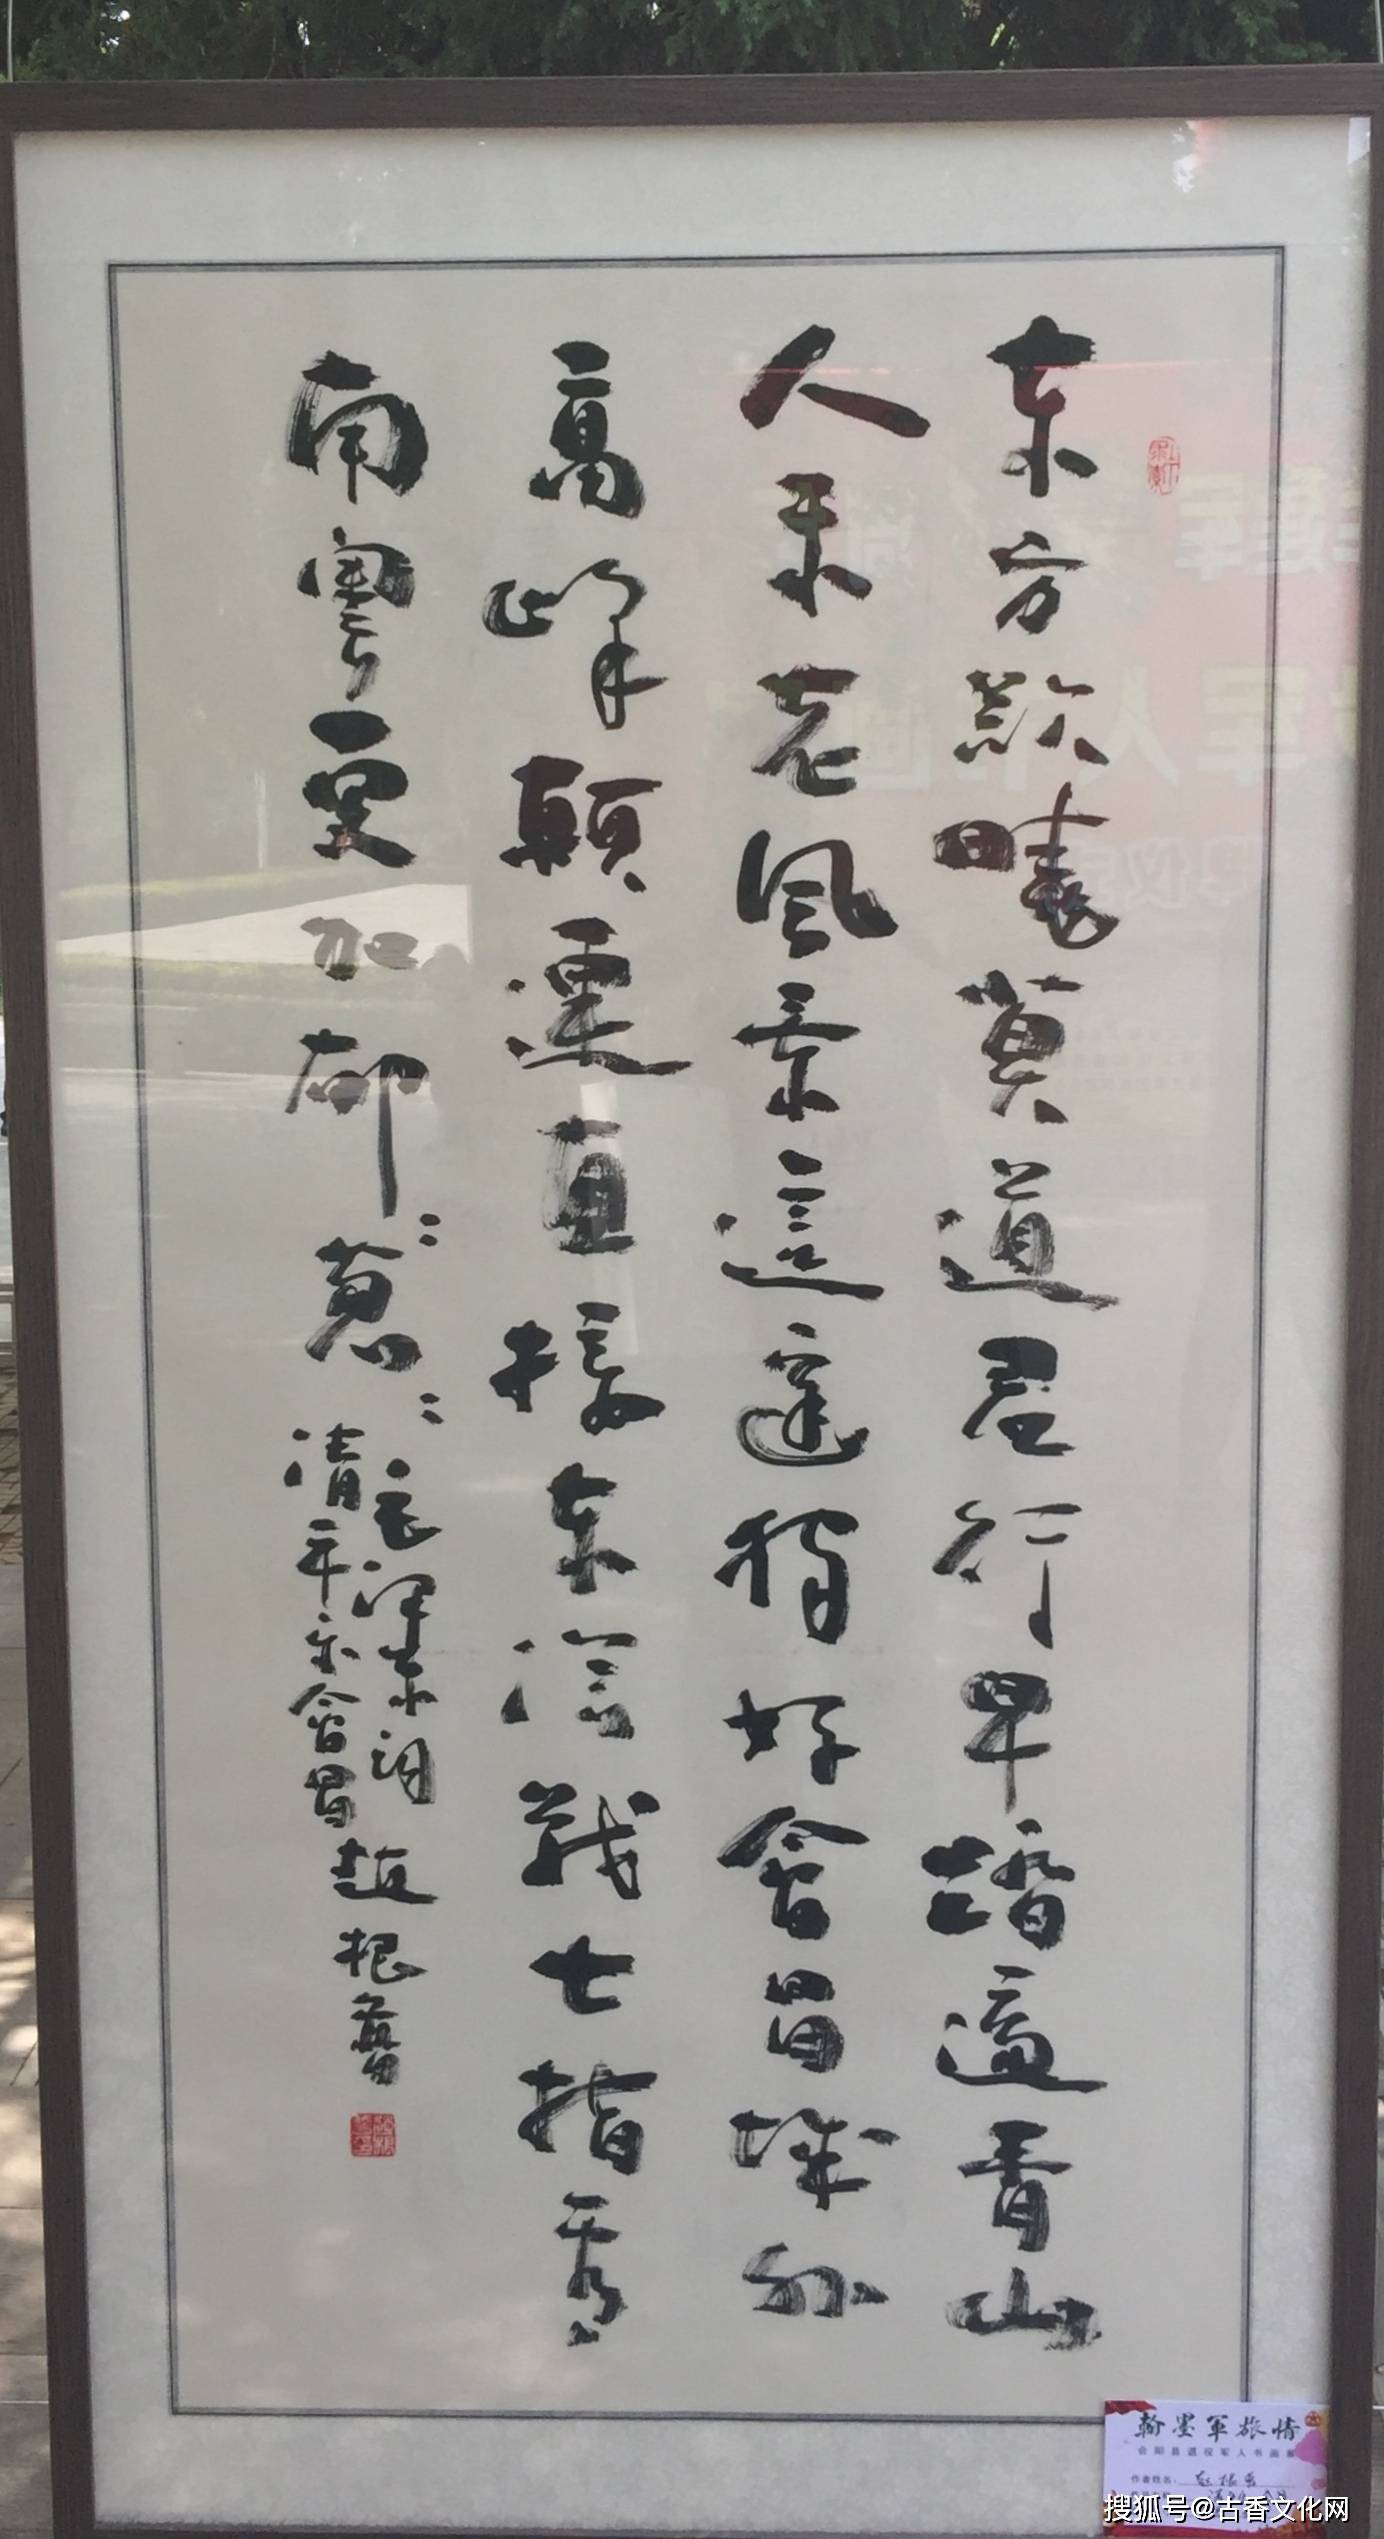 东方欲曉莫道君行早踏遍青山
人未老风景這边独好會昌城外
高峰颠连直接东溟战士指看
南粤更加郁：葱：
毛泽东词
清平乐會昌
赵根
翰墨軍旅情
合阳县退役军人书画展
作者姓名：
搜狐号@古香文化网